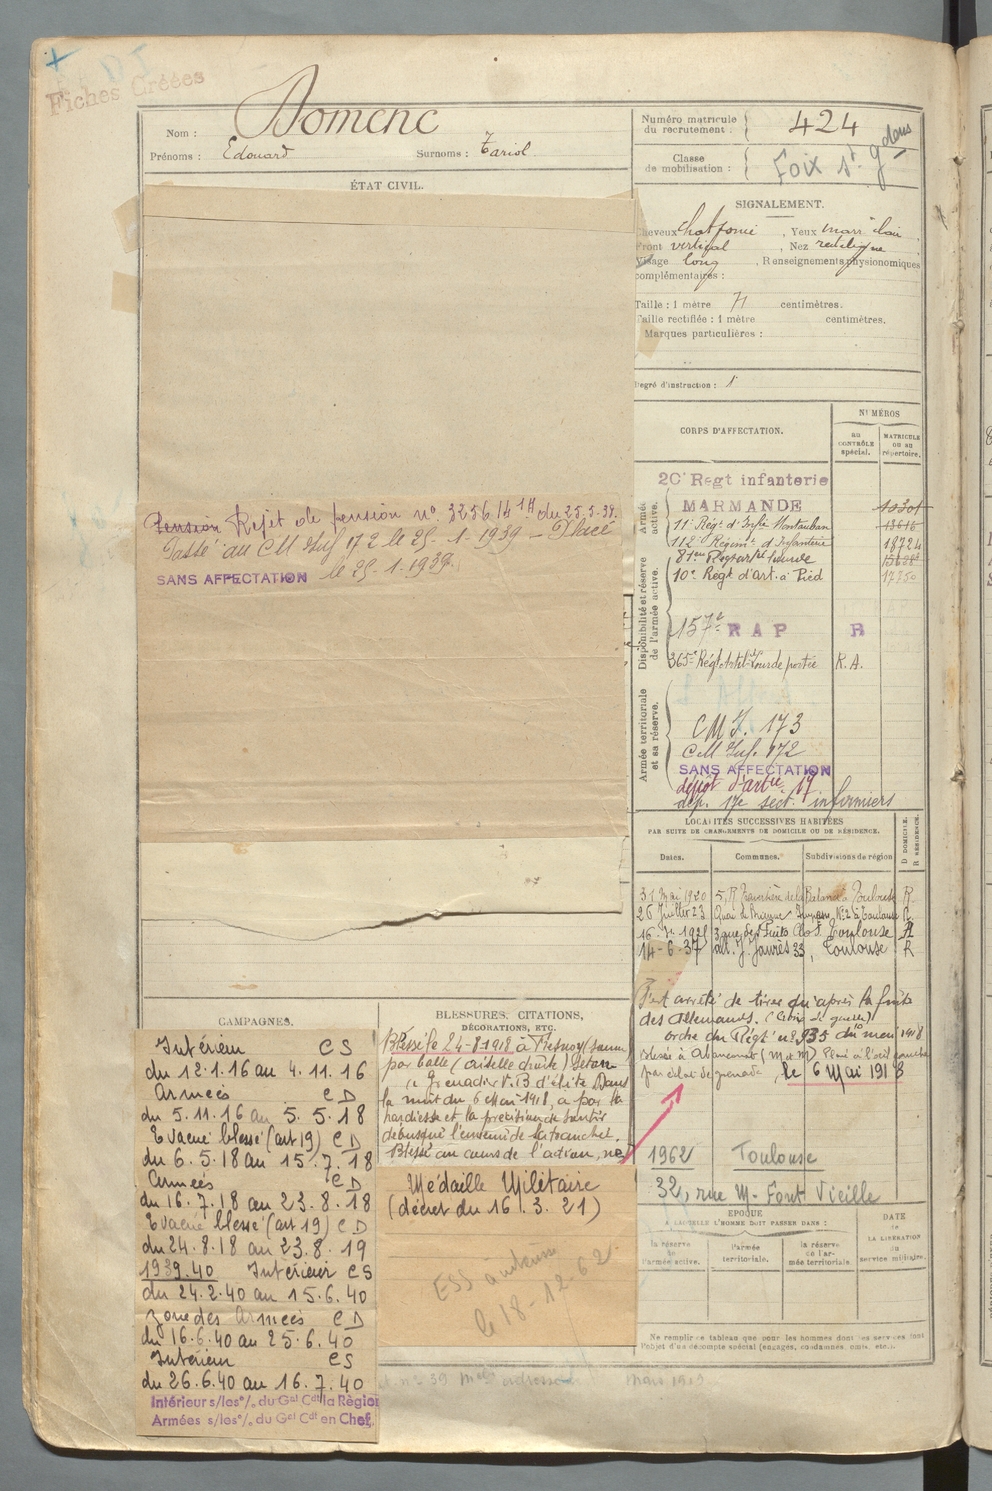 Fiches Créées
Nom : Domenc
Prénoms : Edouard Surnoms : Tariol
Numéro matricule du recrutement : 424
Classe de mobilisation : Foix St gdens
ÉTAT CIVIL.
Pension Rejet de pension no 325614 du 25.5.39.
Passé au CM Inf 172 le 25-1-1939 - Placé
SANS AFFECTATION le 25-1-1939.
SIGNALEMENT.
Cheveux , Yeux marr clair
Front vertical , Nez rectiligne
Visage long , Renseignements physionomiques
complémentaires :
Taille : 1 mètre 71 centimètres.
Taille rectifiée : 1 mètre centimètres.
Marques particulières :
Degré d'instruction :
CORPS D'AFFECTATION.
NUMÉROS
au CONTRÔLE spécial.
MATRICULE OU AU répertoire.
Armée active.
20e Regt infanterie
MARMANDE
11e Régt d'Infie Montauban
112e Régimt d'Infanterie 18724
10e Régt d'Art. à Pied 17250
Disponibilité et réserve de l'armée active.
157e R A P R
365e Régt Artil. Lourde portée R.A.
Armée territoriale et sa réserve.
CM I. 173
CM Inf. 172
SANS AFFECTATION
dépôt d'artie 17
dép. 17e sect. infirmiers
LOCALITÉS SUCCESSIVES HABITÉES
PAR SUITE DE CHANGEMENTS DE DOMICILE OU DE RÉSIDENCE.
Dates. Communes. Subdivisions de région D DOMICILE. R RÉSIDENCE.
31 Mai 1920 5, R Toulouse R.
26 Juillet 23 Quai No 2 à Toulouse R.
Toulouse R
14-6-37 all. J. Jaurès 33, Toulouse R
CAMPAGNES.
Intérieur CS
du 12.1.16 au 4.11.16
Armées CD
du 5.11.16 au 5.5.18
Evacué blessé (art 19) CD
du 6.5.18 au 15.7.18
Armées CD
du 16.7.18 au 23.8.18
Evacué blessé (art 19) CD
du 24.8.18 au 23.8.19
1939.40 Intérieur CS
du 24.2.40 au 15.6.40
Zone des Armées CD
du 16.6.40 au 25.6.40
Intérieur CS
du 26.6.40 au 16.7.40
Intérieur s/les o/. du Gal Cdt la Région
Armées s/les o/. du Gal Cdt en Chef.
BLESSURES, CITATIONS,
DÉCORATIONS, ETC.
Blessé le 24-8-1918 à Fresnoy (Somme)
par balle (aisselle droite) Citation
Grenadier V.B d'élite Dans
la nuit du 6 Mai 1918, a par la
hardiesse et la précision de
débusqué l'ennemi de sa tranchée.
Blessé au cours de l'action, ne
s'est arrêté de tirer qu'après la fuite
des Allemands. (Citation de guerre)
ordre du Régt no 935 du mai 1918
Blessé à Plaie à l'oeil gauche
par éclat de grenade, le 6 Mai 1918
Médaille Militaire
(décret du 16.3.21)
ESS
le 18-12-62
1962 Toulouse
32, rue M. Font Vieille
EPOQUE
A LAQUELLE L'HOMME DOIT PASSER DANS :
la réserve de l'armée active.
l'armée territoriale.
la réserve de l'armée territoriale.
DATE de LA LIBÉRATION du service militaire.
Ne remplir ce tableau que pour les hommes dont les services font
l'objet d'un décompte spécial (engagés, condamnés, omis, etc.).